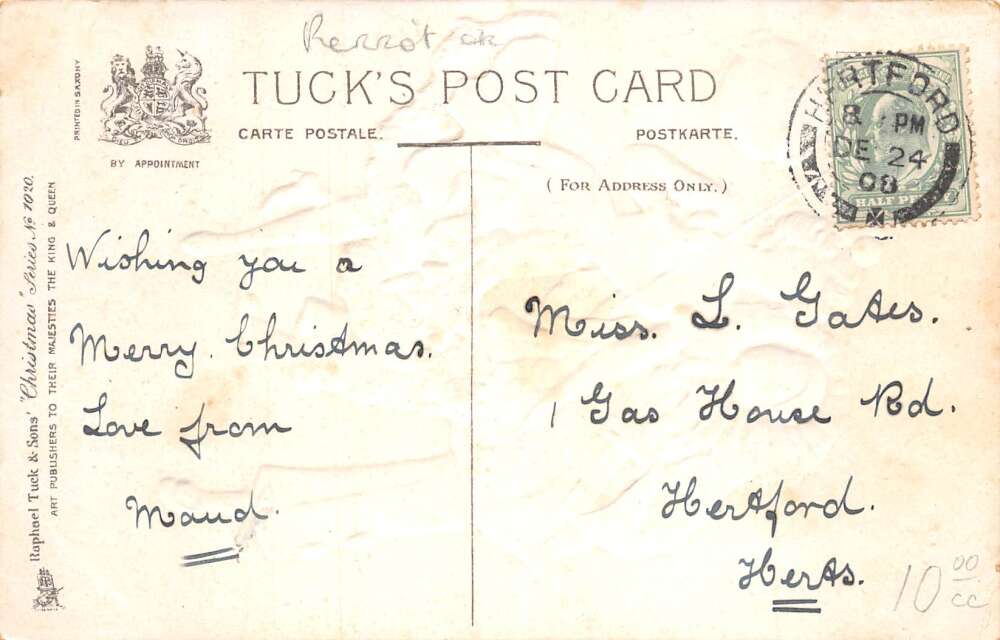 Perrot ok
TUCK'S POST CARD
CARTE POSTALE.
POSTKARTE.
(FOR ADDRESS ONLY.)
PRINTED IN SAXONY
BY APPOINTMENT
Raphael Tuck & Sons' "Christmas" Series No 7020.
ART PUBLISHERS TO THEIR MAJESTIES THE KING & QUEEN
HERTFORD
8 PM
DE 24
08
HALF
Wishing you a
Merry. Christmas.
Love from
Maud.
Miss. L. Gates.
1 Gas House Rd.
Hertford.
Herts.
10 00
cc